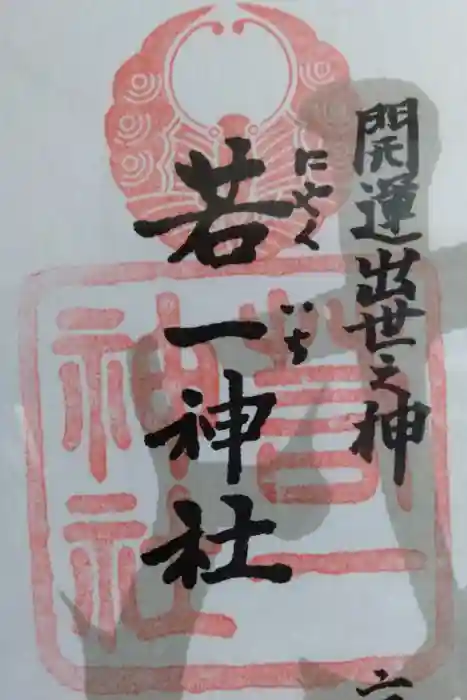 開運出世之神
にゃくいち
若一神社
若一
神社